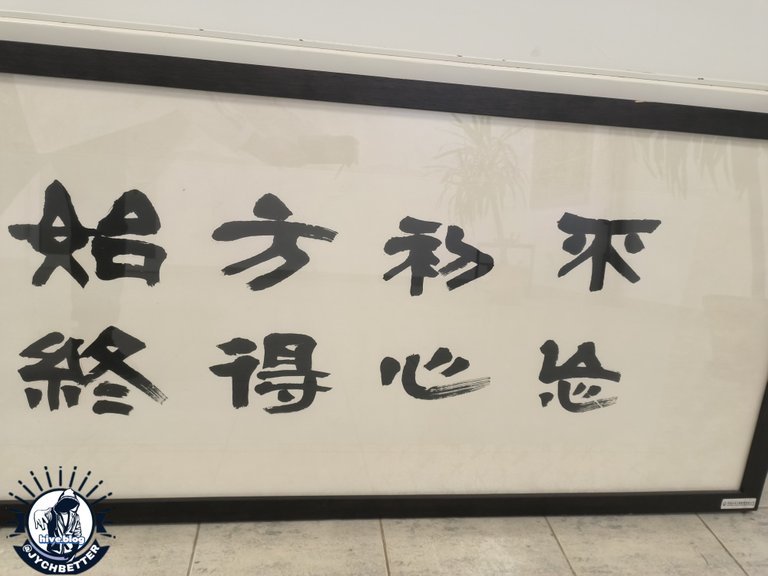 不忘
初心
方得
始終
hive.blog
@JYCHBETTER